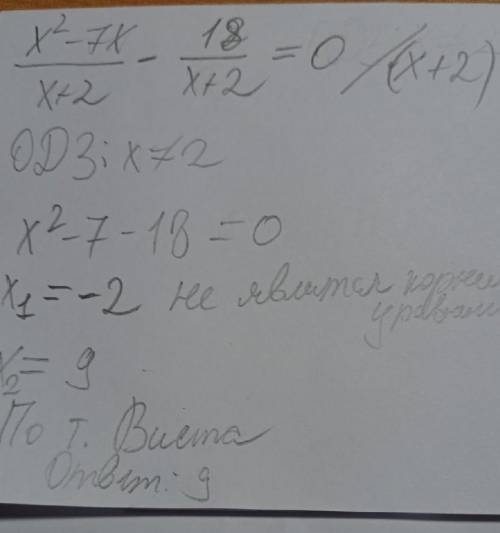 x²-7x / x+2 - 18 / x+2 = 0 /·(x+2)
ОДЗ: x≠2
x²-7-18=0
x₁=-2 не явится корнем
уравнен
x₂= 9
По т. Виета
Ответ: 9